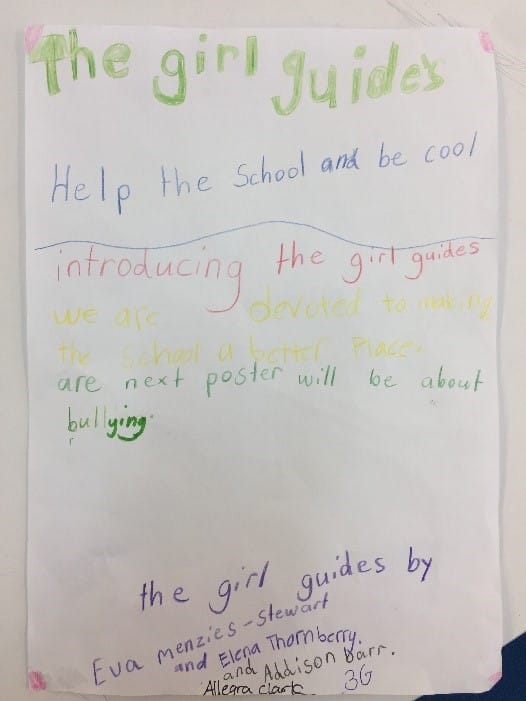 The girl guides
Help the School and be cool
introducing the girl guides
we are devoted to making
the school a better Place.
are next poster will be about
bullying.
the girl guides by
Eva menzies-Stewart
and Elena Thornberry.
and Addison barr.
Allegra clark 3G